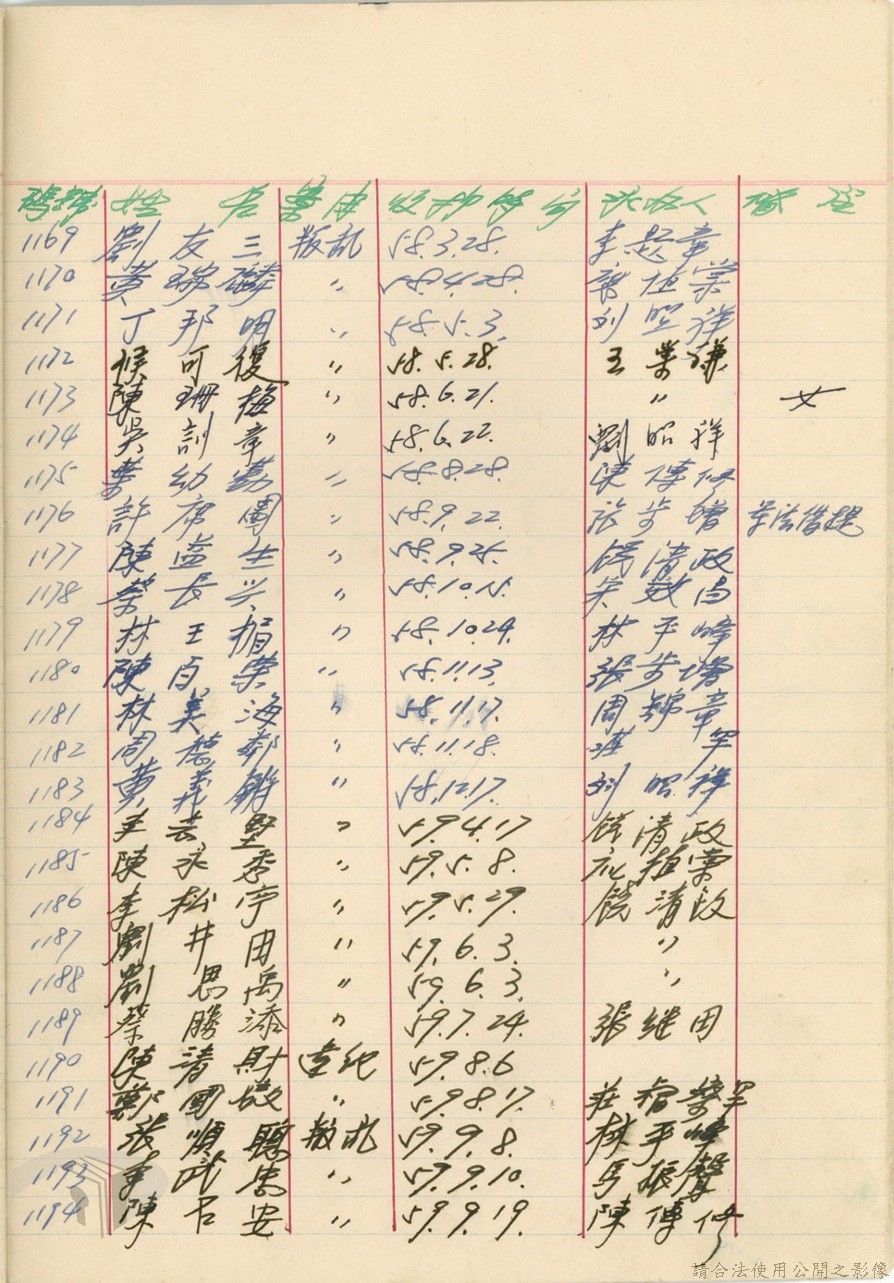 號 姓 名 案由 收押時間 承辦人 備 註
1169 劉友三 叛乱 58.3.28. 李 章
1170 黃瑞麟 〃 58.4.28. 廖植榮
1171 丁邦明 〃 58.5.3. 刘照祥
1172 侯可復 〃 58.5.28. 王業謙
1173 陳珊梅 〃 58.6.21. 〃 女
1174 吳訓章 〃 58.6.22. 劉昭祥
1175 葉幼荔 〃 58.8.28. 陳傳修
1176 許席圖 〃 58.9.22. 張步增 軍法借提
1177 陳益生 〃 58.9.25. 饒清政
1178 蔡長兴 〃 58.10.15. 吳效
1179 林王楫 〃 58.10.24. 林平峰
1180 陳百榮 〃 58.11.13. 張步增
1181 林美海 〃 58.11.17. 周錦章
1182 周農 〃 58.11.18.
1183 黃義鏘 〃 58.12.17. 刘昭祥
1184 芸堅 〃 59.4.17 饒清政
1185 陳永秀 〃 59.5.8. 植榮
1186 李松亭 〃 59.5.29. 饒清政
1187 劉井田 〃 59.6.3. 〃
1188 劉思禹 〃 59.6.3. 〃
1189 蔡勝添 〃 59.7.24. 張継田
1190 陳清財 違紀 59.8.6
1191 鄭國啟 〃 59.8.17. 莊
1192 張順聰 叛乱 59.9.8. 林平峰
1193 李武忠 〃 59.9.10. 馬振聲
1194 陳石安 〃 59.9.19. 陳傳修
請合法使用公開之影像